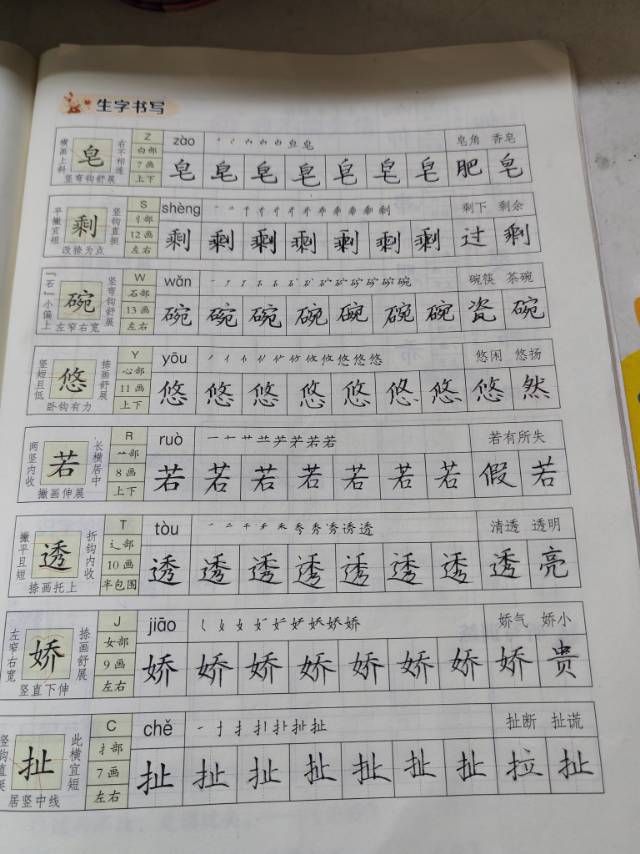 生字书写
横画上斜 皂 右不相连 竖弯钩舒展
Z 白部 7画 上下
zào 皂角 香皂
皂 皂 皂 皂 皂 皂 皂 肥 皂
平撇宜短 剩 竖钩直挺 改捺为点
S 刂部 12画 左右
shèng 剩下 剩余
剩 剩 剩 剩 剩 剩 剩 过 剩
“石”小偏上 碗 竖弯钩舒展 左窄右宽
W 石部 13画 左右
wǎn 碗筷 茶碗
碗 碗 碗 碗 碗 碗 碗 瓷 碗
竖短且低 悠 捺画舒展 卧钩有力
Y 心部 11画 上下
yōu 悠闲 悠扬
悠 悠 悠 悠 悠 悠 悠 悠 然
两竖内收 若 长横居中 撇画伸展
R 艹部 8画 上下
ruò 若有所失
若 若 若 若 若 若 若 假 若
撇平且短 透 折钩内收 捺画托上
T 辶部 10画 半包围
tòu 清透 透明
透 透 透 透 透 透 透 透 亮
左窄右宽 娇 捺画舒展 竖直下伸
J 女部 9画 左右
jiāo 娇气 娇小
娇 娇 娇 娇 娇 娇 娇 娇 贵
竖钩直挺 扯 此横宜短 居竖中线
C 扌部 7画 左右
chě 扯断 扯谎
扯 扯 扯 扯 扯 扯 扯 拉 扯